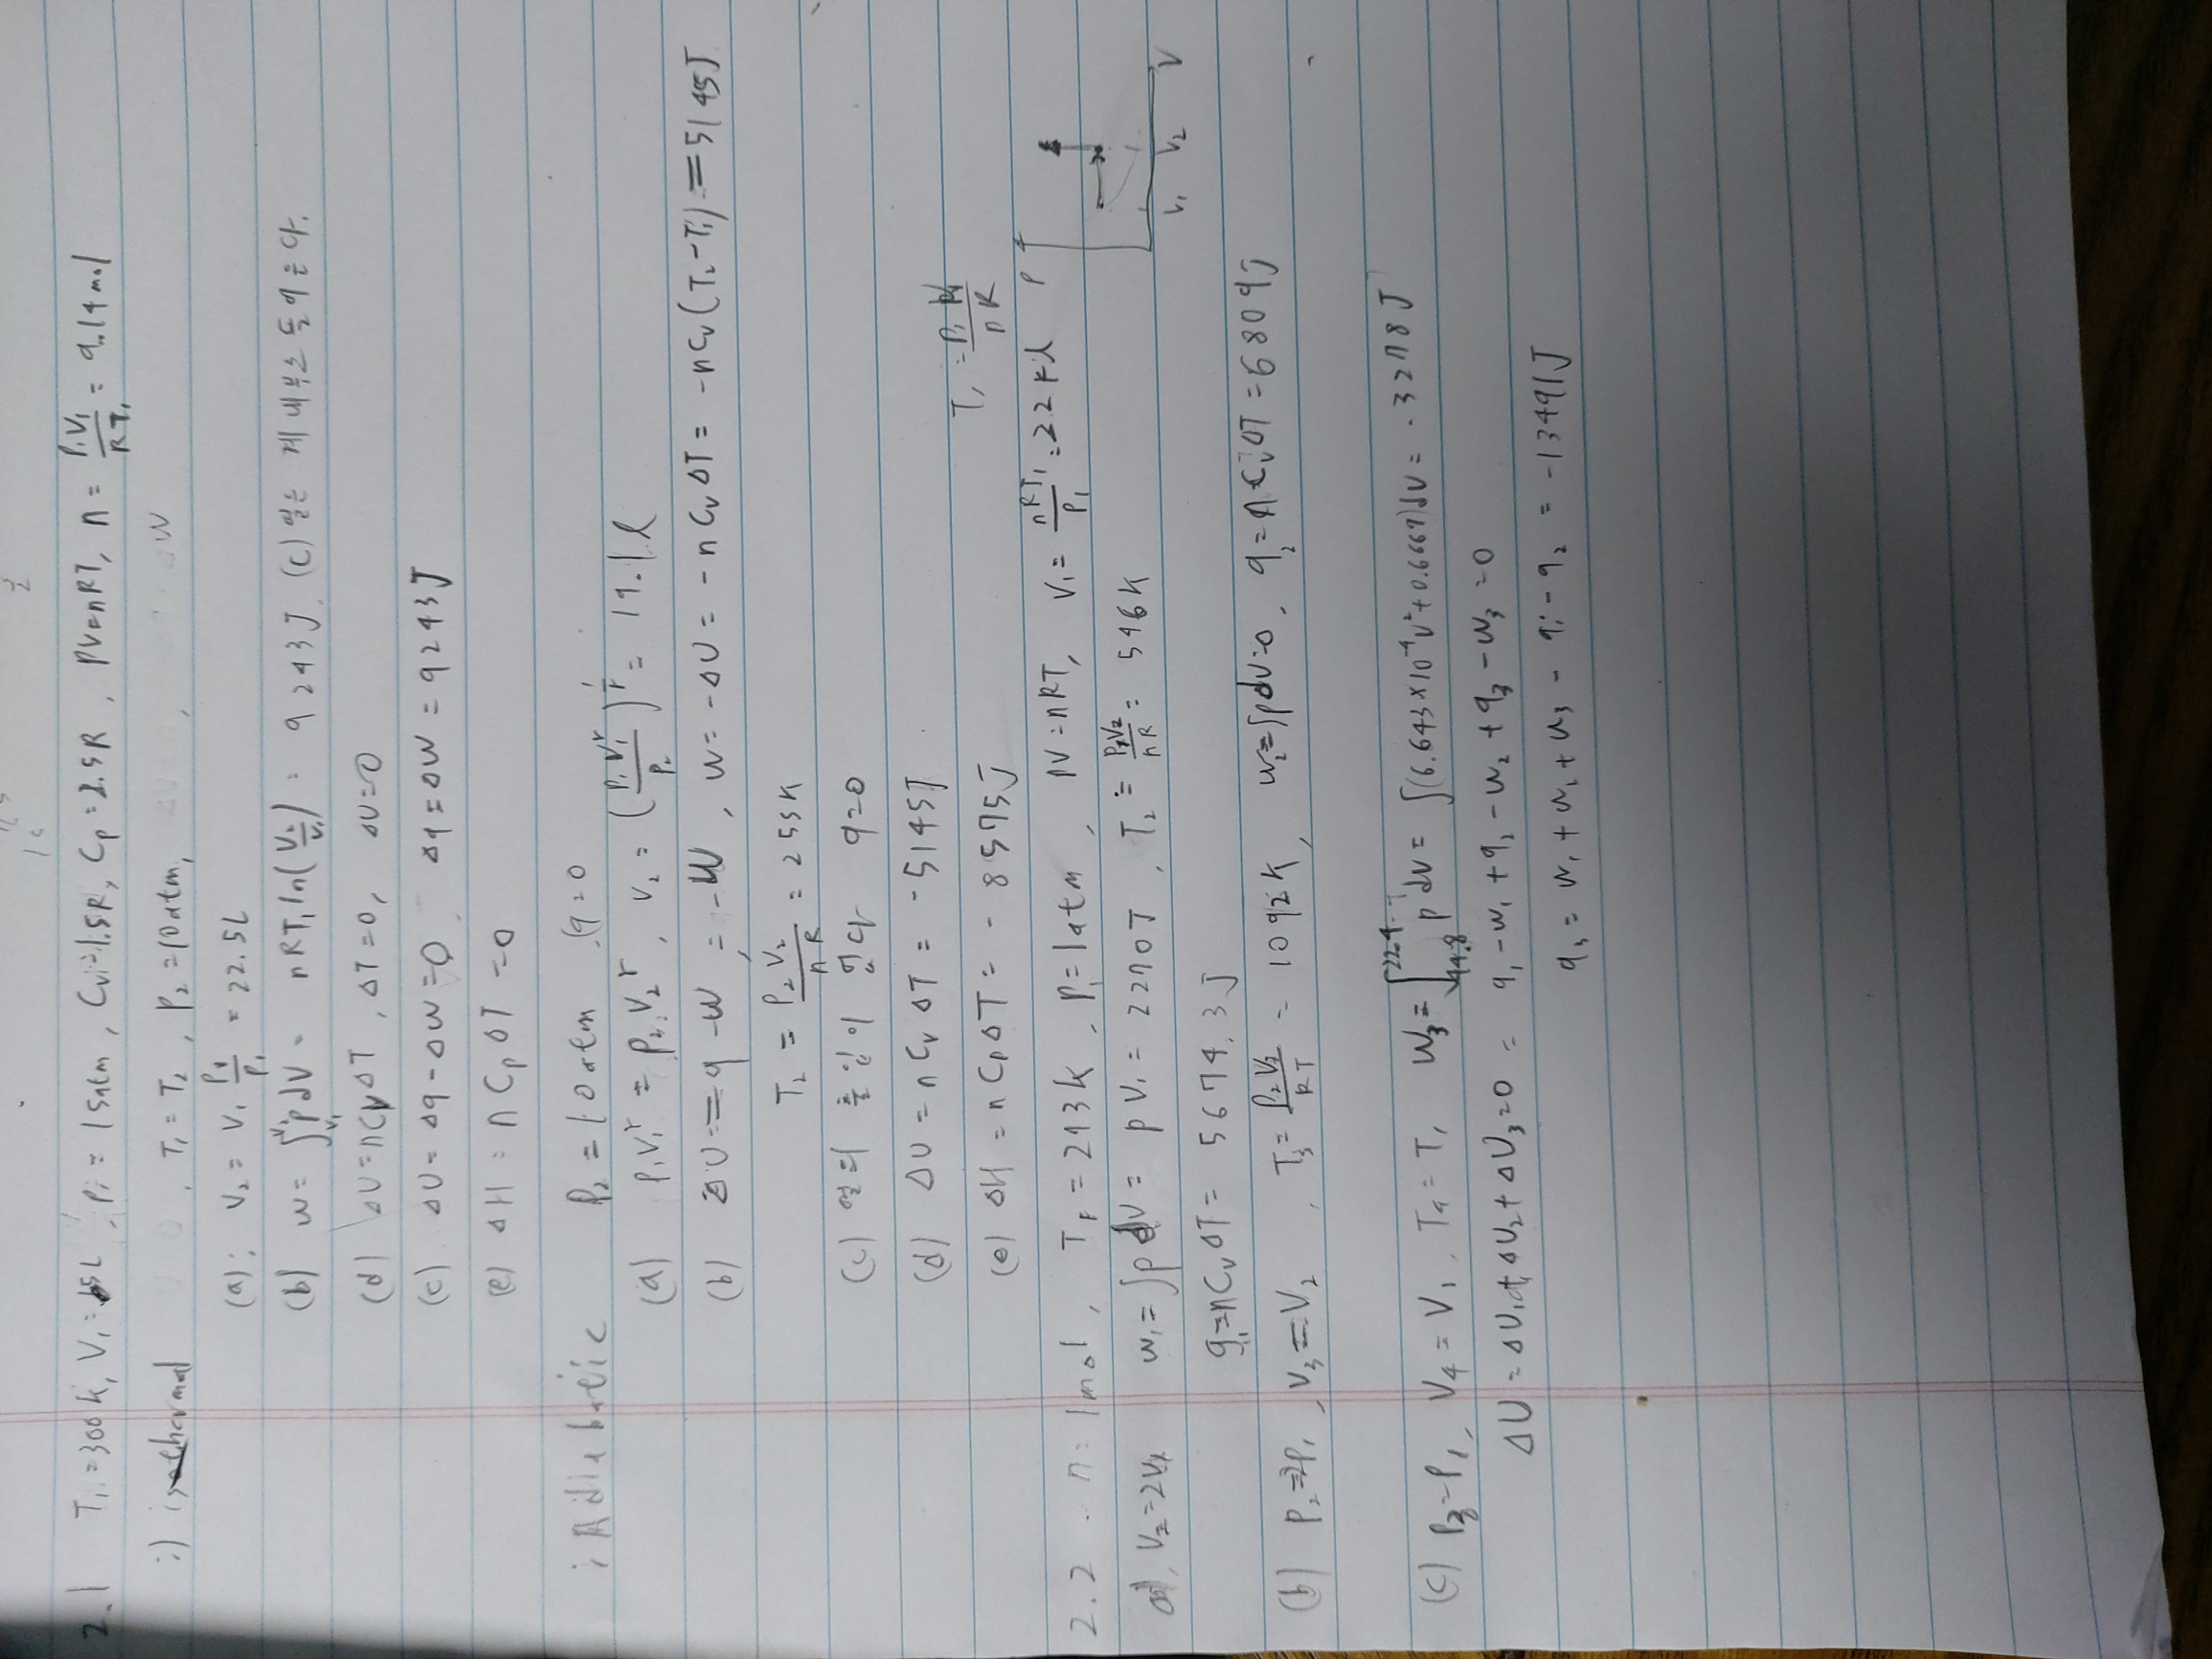 2.1 T₁=300K, V₁=15L, P₁=15atm, Cv=1.5R, Cp=2.5R, PV=nRT, n=P₁V₁/RT₁=9.14mol
i) isothermal T₁=T₂, P₂=10atm,
(a); V₂=V₁ P₁/P₂ = 22.5L
(b) w=∫pdV= nRT₁ln(V₂/V₁)= 9243J (c) 일은 계 내부소
(d) ΔU=nCvΔT, ΔT=0, ΔU=0
(c) ΔU=Δq-Δw=0 Δq=Δw=9243J
(e) ΔH=nCpΔT=0
; Adiabatic P₂=10atm (q=0
(a) P₁V₁ʳ=P₂V₂ʳ, V₂=(P₁V₁ʳ/P₂)^1/r=19.1l
(b) ΔU=q-w=-w, w=-ΔU=-nCvΔT=-nCv(T₂-T₁)=5145J
T₂=P₂V₂/nR=255K
(c) 열의 출입이 없다 q=0
(d) ΔU=nCvΔT=-5145J
(e) ΔH=nCpΔT=-8575J
T₁=P₁V₁/nR
2.2. n=1mol, T₁=273K, P₁=1atm, PV=nRT, V₁=nRT₁/P₁=22.4l
P V₁ V₂ V
a), V₂=2V₁ w₁=∫pdV=pV₁=2270J, T₂=P₂V₂/nR=546K
q₁=nCvΔT=5674.3J
(b) P₂=2P₁, V₃=V₂, T₃=P₂V₂/RT=1092K, w₂=∫pdV=0, q₂=nCvΔT=6809J
(c) P₃=P₁, V₄=V₁, T₄=T₁ w₃=∫pdV=∫(6.643×10⁻⁴V²+0.6667)dV=-3278J
ΔU=ΔU₁+ΔU₂+ΔU₃=0=q₁-w₁+q₂-w₂+q₃-w₃=0
q₃=w₁+w₂+w₃-q₁-q₂=-13491J